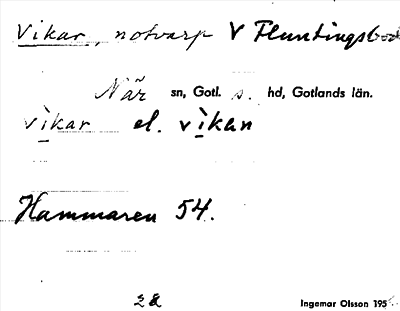 Vikar, notvarp V Fluntingsbod
När sn, Gotl. s. hd, Gotlands län.
vìkar el. vìkan
Hammaren 54.
28
Ingemar Olsson 195